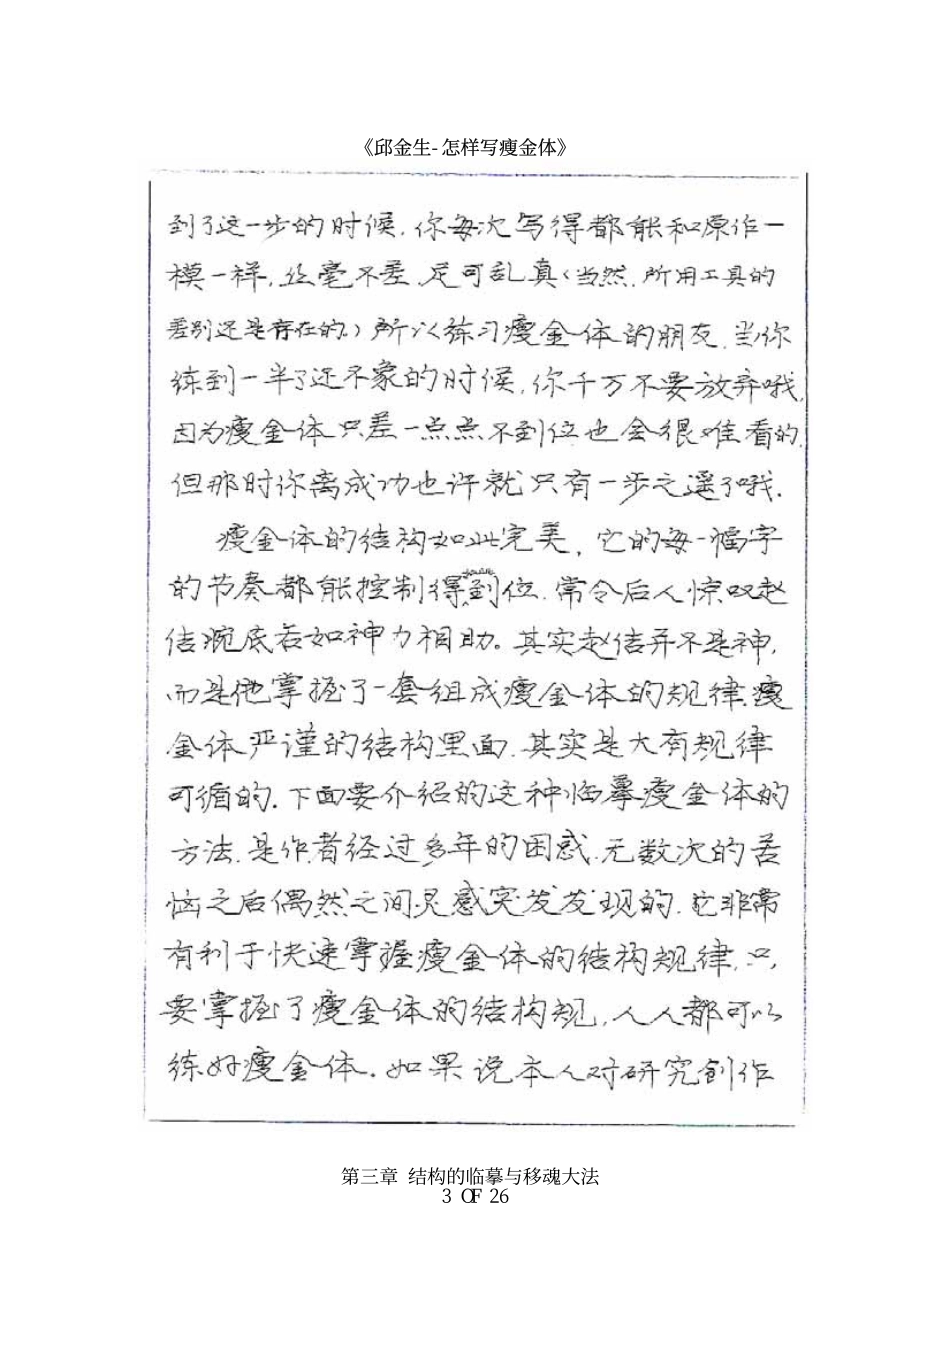 《邱金生-怎样写瘦金体》
到了这一步的时候.你每次写得都能和原作一
模一样,丝毫不差.足可乱真(当然.所用工具的
差别还是存在的.)所以练习瘦金体的朋友.当你
练到一半了还不象的时候,你千万不要放弃哦,
因为瘦金体只差一点点不到位也会很难看的,
但那时你离成功也许就只有一步之遥了哦.
瘦金体的结构如此完美,它的每一幅字
的节奏都能控制得到位.常令后人惊叹赵
佶腕底若如神力相助。其实赵佶并不是神,
而是他掌握了一套组成瘦金体的规律.瘦
金体严谨的结构里面.其实是大有规律
可循的.下面要介绍的这种临摹瘦金体的
方法.是作者经过多年的困惑.无数次的苦
恼之后偶然之间灵感突发发现的.它非常
有利于快速掌握瘦金体的结构规律.只,
要掌握了瘦金体的结构规,人人都可以
练好瘦金体.如果说本人对研究创作
第三章 结构的临摹与移魂大法
3 OF 26